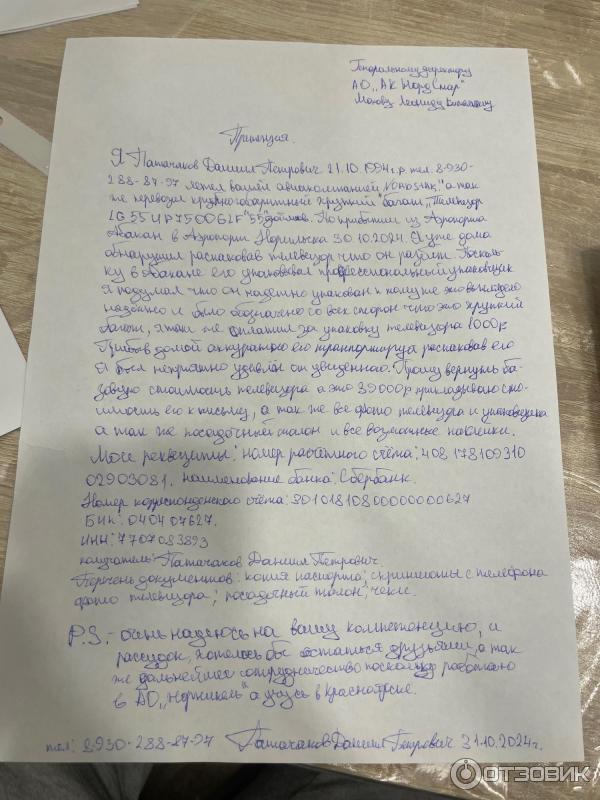 Генеральному директору
АО "АК Норд Стар"
Мохову Леониду
Притензия.
Я Патачаков Даниил Петрович 21.10.1994г.р тел. 8-930-
288-87-97 летел вашей авиакомпанией "Nordstar" а так
же перевозил крупногабаритный хрупкий багаж "Телевизор
LG 55UP75006LF" 55 дюймов. По прибытии из Аэропорта
Абакан в Аэропорт Норильска 30.10.2024. Я уже дома
обнаружил распаковав телевизор что он разбит. Посколь-
ку в Абакане его упаковывал профессиональный упаковщик
я подумал что он надежно упакован к тому же это выглядело
надежно и было обозначено со всех сторон что это хрупкий
багаж, я так же оплатил за упаковку телевизора 1000р
Прибыв домой аккуратно его транспортируя распаковав его
Я был неприятно удивлён от увиденного. Прошу вернуть ба-
зовую стоимость телевизора а это 39000р прикладываю сто-
имость его к письму, а так же все фото телевизора и упаковщика
а так же посадочный талон и все возможные наклейки.
Мои реквизиты: номер расчётного счёта: 408 178109310
02903081. наименование банка: Сбербанк.
Номер корреспондентского счёта: 30101810800000000627
Бик: 040407627.
ИНН: 7707083893
получатель: Патачаков Даниил Петрович.
Перечень документов: копия паспорта; скриншоты с телефона
фото телевизора; посадочный талон; чеки.
P.S. - очень надеюсь на вашу компетенцию, и
рассудок, хотелось бы остаться друзьями, а так
же дальнейшее сотрудничество поскольку работаю
в АО "Норникель" а учусь в Красноярске.
тел: 8-930-288-87-97 Патачаков Даниил Петрович 31.10.2024г.
ОТЗОВИК